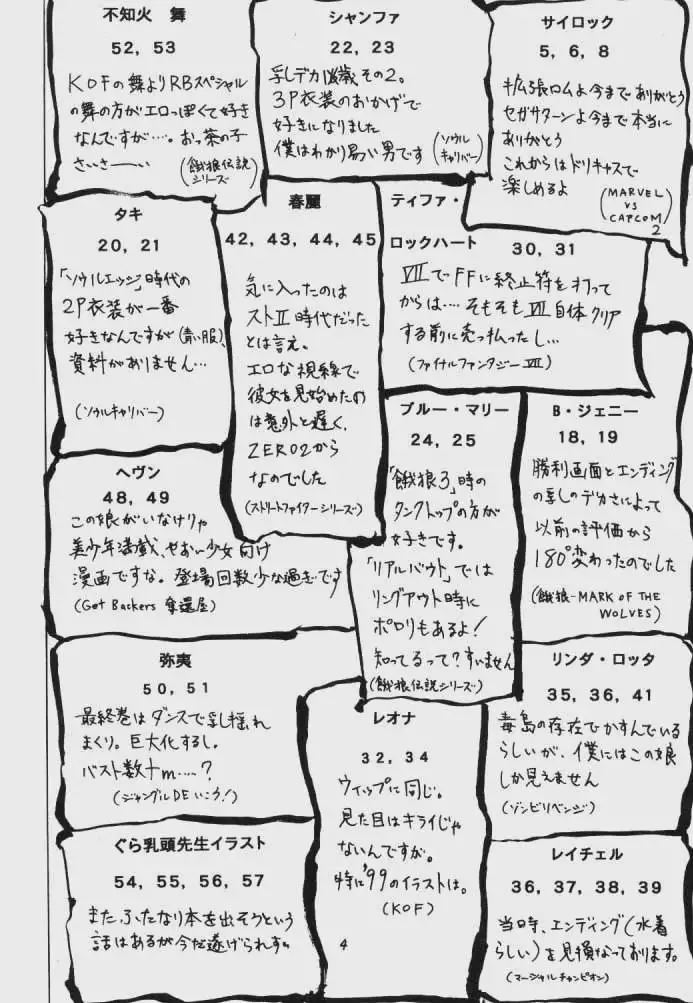 不知火 舞
52, 53
KOFの舞よりRBスペシャル
の舞の方がエロっぽくて好き
なんですが‥‥。おっ茶の子
さいさーーい
(餓狼伝説
シリーズ)
シャンファ
22, 23
乳デカ 歳その2。
3P衣装のおかげで
好きになりました
僕はわかり易い男です
(ソウル
キャリバー)
サイロック
5, 6, 8
拡張ロムよ今までありがとう
セガサターンよ今まで本当に
ありがとう
これからはドリキャスで
楽しめるよ
(MARVEL
VS
CAPCOM
2
タキ
20, 21
「ソウルエッジ」時代の
2P衣装が一番
好きなんですが(青い服)、
資料がありません…
(ソウルキャリバー)
春麗
42, 43, 44, 45
気に入ったのは
ストⅡ時代だった
とは言え、
エロな視線で
彼女を見始めたの
は意外と遅く、
ZERO2から
なのでした
(ストリートファイターシリーズ)
ティファ・
ロックハート
30, 31
ⅦでFFに終止符を打って
からは‥‥そもそもⅦ自体クリア
する前に売っ払ったし…
(ファイナルファンタジーⅦ)
ブルー・マリー
24, 25
「餓狼3」時の
タンクトップの方が
好きです。
「リアルバウト」では
リングアウト時に
ポロリもあるよ!
知ってるって?すいません
(餓狼伝説シリーズ)
B・ジェニー
18, 19
勝利画面とエンディング
の乳のデカさによって
以前の評価から
180°変わったのでした
(餓狼-MARK OF THE
WOLVES)
ヘヴン
48, 49
この娘がいなけりゃ
美少年満載、せおい少女向け
漫画ですな。登場回数少な過ぎです
(Get Backers 奪還屋)
弥夷
50, 51
最終巻はダンスで乳揺れ
まくり。巨大化するし。
バスト数十m‥‥?
(ジャングルDEいこう!)
レオナ
32, 34
ウィップに同じ。
見た目はキライじゃ
ないんですが。
特に'99のイラストは。
(KOF)
リンダ・ロッタ
35, 36, 41
毒島の存在でかすんでいる
らしいが、僕にはこの娘
しか見えません
(ゾンビリベンジ)
ぐら乳頭先生イラスト
54, 55, 56, 57
また、ふたなり本を出そうという
話はあるが今だ遂げられず。
レイチェル
36, 37, 38, 39
当時、エンディング(水着
らしい)を見損なっております。
(マーシャルチャンピオン)
4